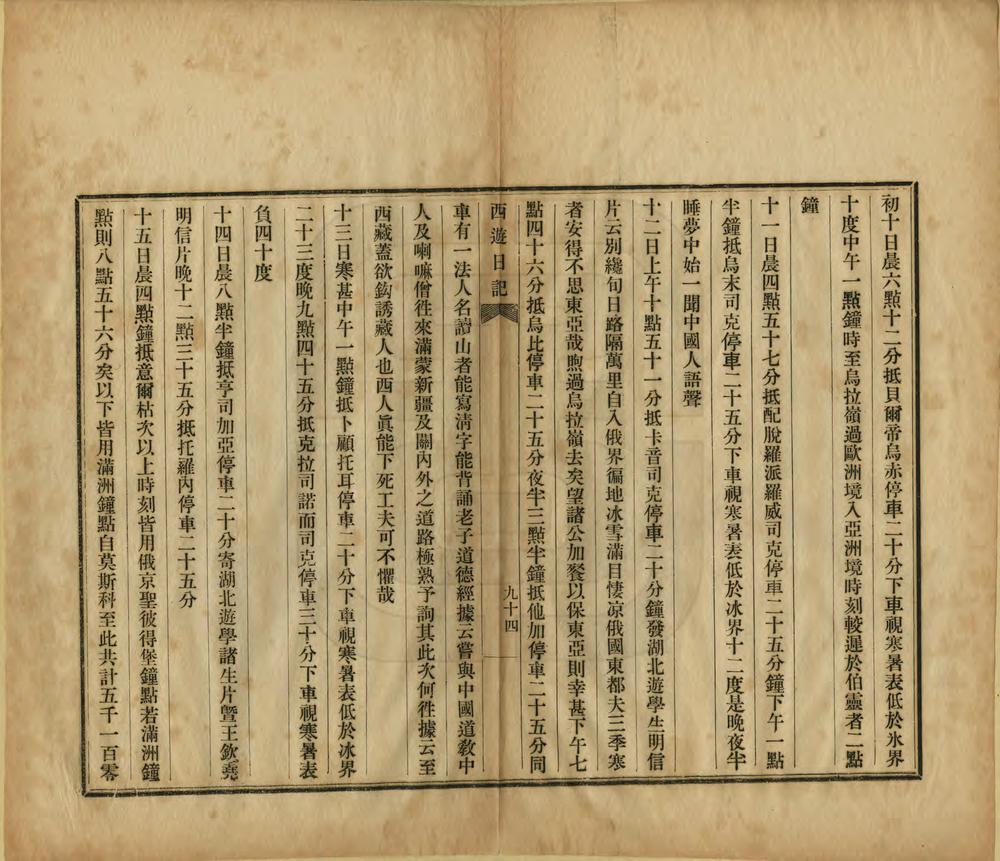 初十日晨六點十二分抵貝爾帝烏赤停車二十分下車視寒暑表低於氷界
十度中午一點鐘時至烏拉嶺過歐洲境入亞洲境時刻較遲於伯靈者二點
鐘
十一日晨四點五十七分抵配脫羅派羅威司克停車二十五分鐘下午一點
半鐘抵烏末司克停車二十五分下車視寒暑表低於冰界十二度是晚夜半
睡夢中始一聞中國人語聲
十二日上午十點五十一分抵卡音司克停車二十分鐘發湖北遊學生明信
片云別纔旬日路隔萬里自入俄界徧地冰雪滿目悽凉俄國東都夫三季寒
者安得不思東亞哉煦過烏拉嶺去矣望諸公加餐以保東亞則幸甚下午七
點四十六分抵烏比停車二十五分夜半三點半鐘抵他加停車二十五分同
西遊日記
九十四
車有一法人名讀山者能寫淸字能背誦老子道德經據云嘗與中國道敎中
人及喇嘛僧徃來滿蒙新疆及關內外之道路極熟予詢其此次何徃據云至
西藏蓋欲鈎誘藏人也西人眞能下死工夫可不懼哉
十三日寒甚中午一點鐘抵卜顧托耳停車二十分下車視寒暑表低於冰界
二十三度晚九點四十五分抵克拉司諾而司克停車三十分下車視寒暑表
負四十度
十四日晨八點半鐘抵亨司加亞停車二十分寄湖北遊學諸生片曁王欽堯
明信片晚十二點三十五分抵托羅內停車二十五分
十五日晨四點鐘抵意爾枯次以上時刻皆用俄京聖彼得堡鐘點若滿洲鐘
點則八點五十六分矣以下皆用滿洲鐘點自莫斯科至此共計五千一百零